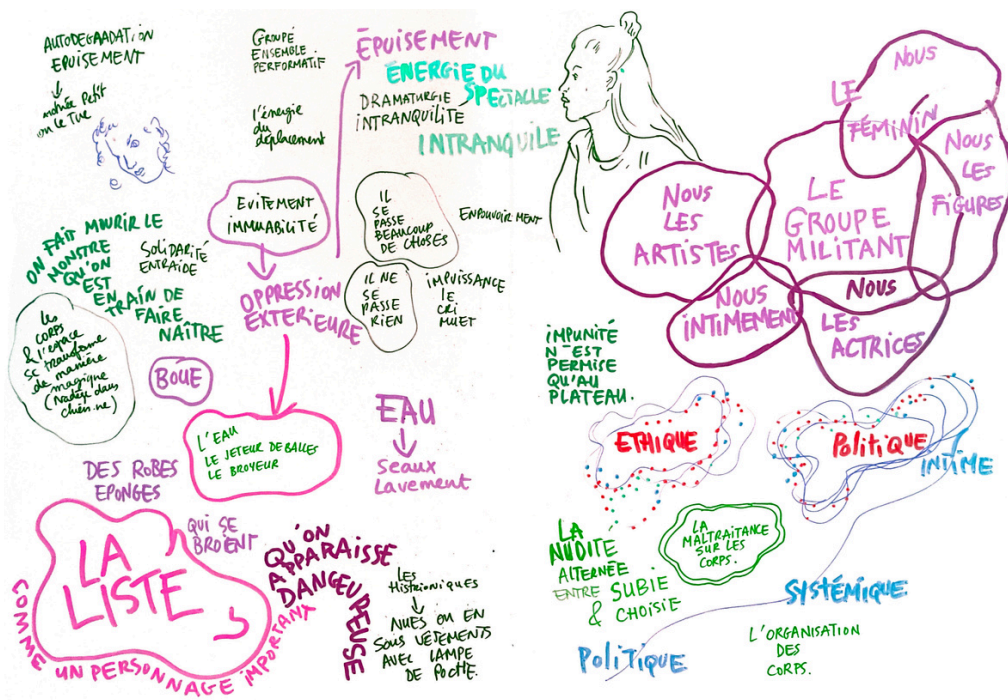 AUTODEGRADATION
EPUISEMENT
GROUPE
ENSEMBLE
PERFORMATIF
l'énergie
du
déplacement
ÉPUISEMENT
ENERGIE DU
SPECTACLE
DRAMATURGIE
INTRANQUILITÉ
INTRANQUILE
EVITEMENT
IMMUABILITÉ
OPPRESSION
EXTERIEURE
IL
SE
PASSE
BEAUCOUP
DE CHOSES
IL NE
SE
PASSE
RIEN
IMPUISSANCE
LE
CRI
MUET
ON FAIT MOURIR LE
MONSTRE
QU'ON
EST
EN
TRAIN DE
FAIRE
NAÎTRE
SOLIDARITÉ
ENTRAIDE
les
CORPS
& l'espace
se transforme
de manière
magique
BOUE
L'EAU
LE JETEUR DE BALLES
LE BROYEUR
EAU
Seaux
Lavement
DES ROBES
EPONGES
QUI SE
BROIENT
LA
LISTE
COMME UN PERSONNAGE IMPORTANT
QU'ON
APPARAISSE
DANGEUREUSE
LES
Histrioniques
NUES OU EN
SOUS VÊTEMENTS
AVEC LAMPE
DE POCHE.
NOUS
LE
FÉMININ
NOUS
LES
FIGURES
NOUS
LES
ARTISTES
LE
GROUPE
MILITANT
NOUS
INTIMEMENT
NOUS
LES
ACTRICES
IMPUNITÉ
N'EST
PERMISE
QU'AU
PLATEAU.
ETHIQUE
POLITIQUE
INTIME
LA
NUDITÉ
ALTERNÉE
ENTRE SUBIE
& CHOISIE
LA
MALTRAITANCE
SUR LES
CORPS.
SYSTÉMIQUE.
POLITIQUE
L'ORGANISATION
DES
CORPS.